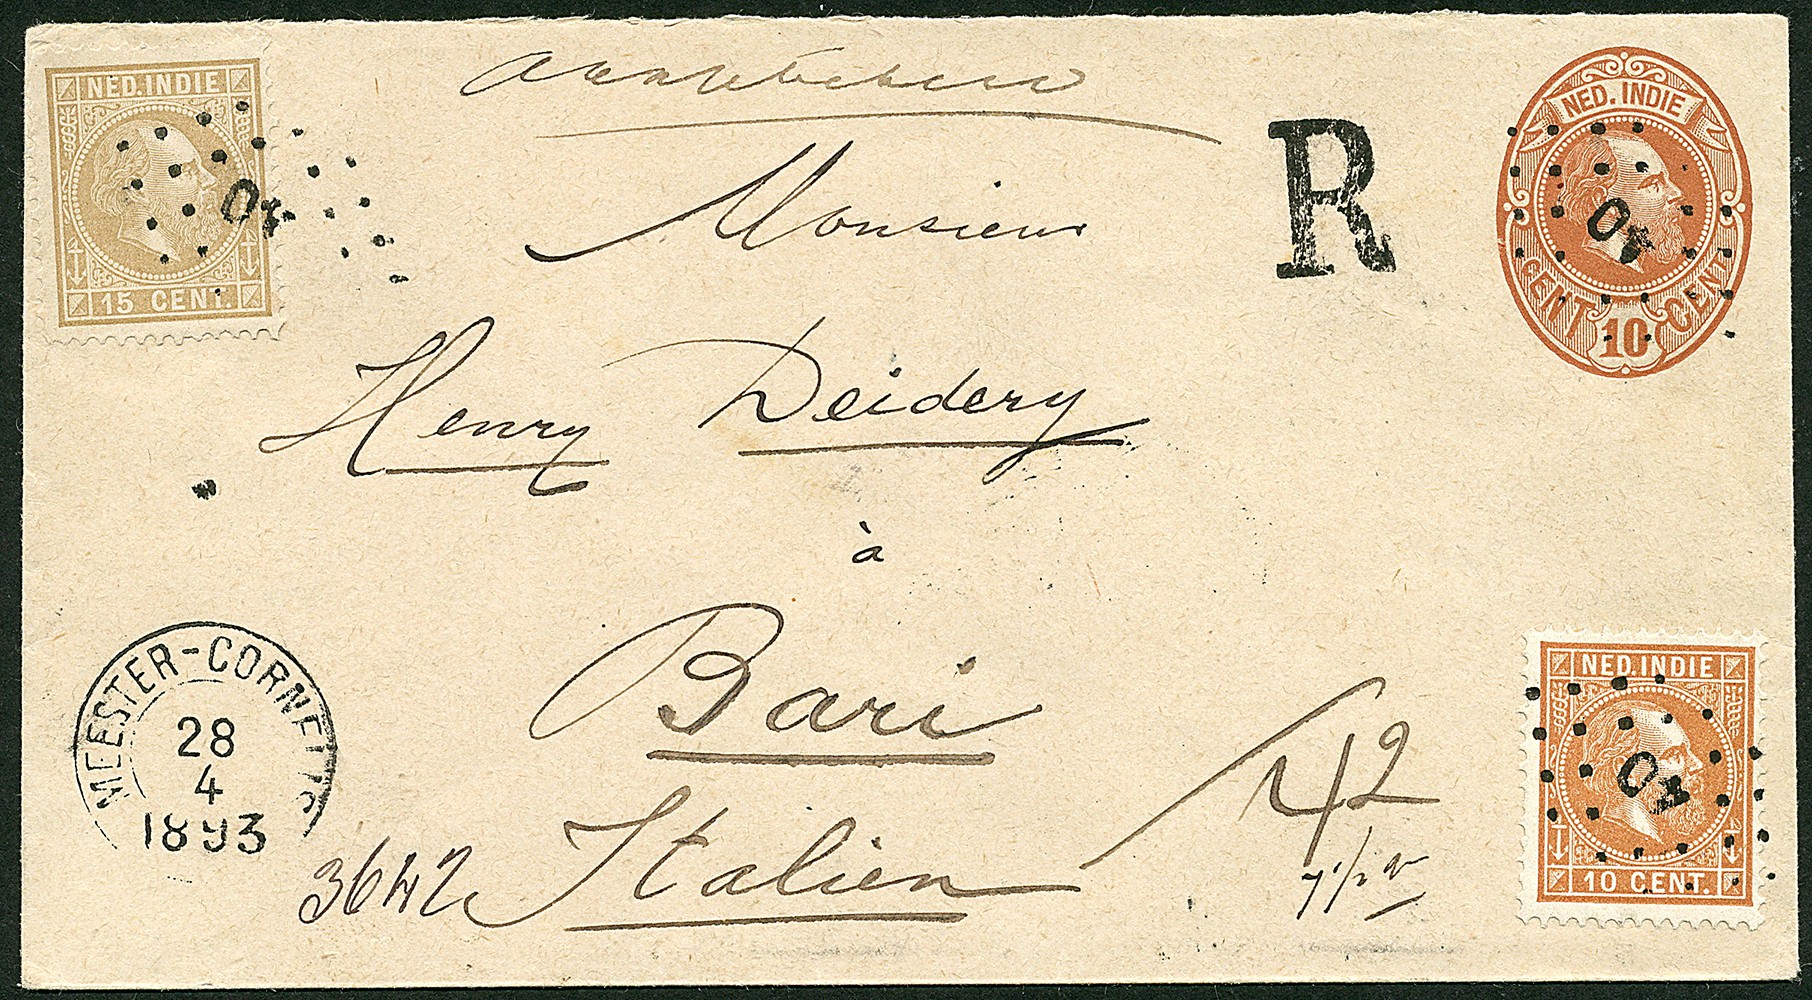 NED. INDIE
15 CENT.
40
Monsieur
Henry Deidery
à
Bari
Italien
R
NED. INDIE
CENT 10 CENT
40
MEESTER-CORNELIS
28
4
1893
3642
42
7½
NED. INDIE
10 CENT.
40